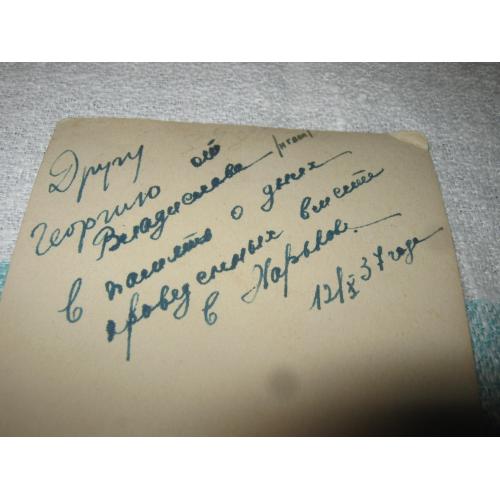 Другу
Георгию от
Владислава
в память о днях
проведенных вместе
в Харькове.
12/X 37 года